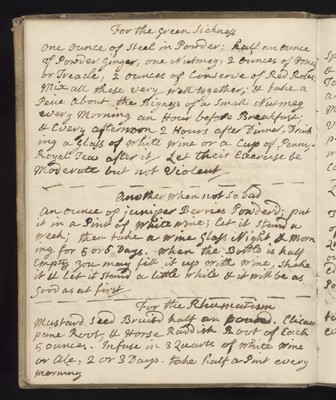 For the Green Sickness
One ounce of Steel in Powder; half an ounce
of Powder Ginger, one Nutmeg, 2 ounces of Honey
or Treacle, 2 ounces of Conserve of Red Roses.
Mix all these very well together; & take a
Peice about the Bigness of a Small Nutmeg
every Morning an Hour before Breakfast;
& Every afternoon 2 Hours after Dinner, Drink
ing a Glass of White Wine or a Cup of Penny-
Royal Tea after it. Let their Exercise be
Moderate but not Violent
Another when not so bad
An ounce of juniper Berries Powderd; put
it in a Pint of White Wine; let it Stand a
Week; then take a Wine Glass Night & Morn
ing for 5 or 6 Days. When the Bottle is half
Empty you may fill it up with Wine, Shake
it & let it Stand a little while & it will be as
Good as at first
For the Rhumatism
Mustard Seed Bruisd half an pound. Elicam
pane Root, & Horse Raddish Root of Each
5 ounces. Infuse in 3 Quarts of White Wine
or Ale, 2 or 3 Days. take half a Pint every
morning